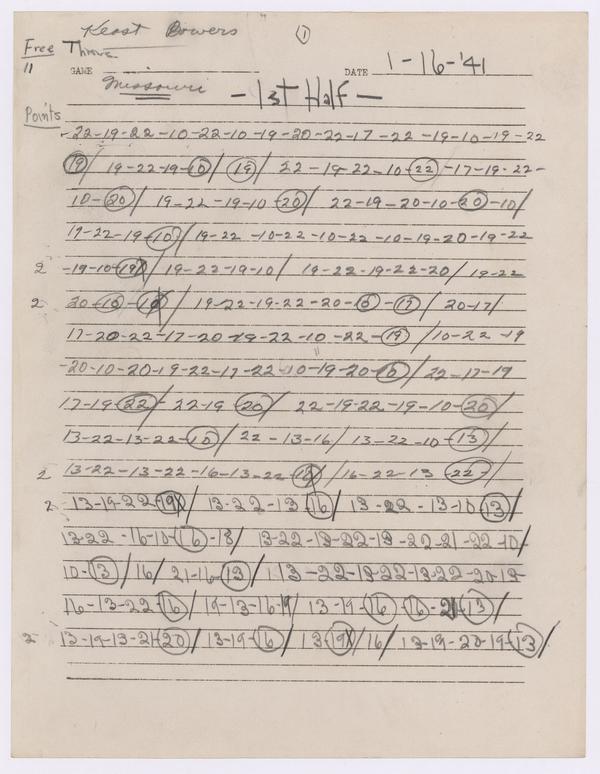 Keast Bowers
①
Free Throws
11
GAME Missouri
DATE 1-16-'41
-1st Half-
Points
-22-19-22-10-22-10-19-20-22-17-22-19-10-19-22
(19)/ 19-22-19-(10)/ (19)/ 22-19-22-10-(22)-17-19-22-
10-(20)/ 19-22-19-10-(20)/ 22-19-20-10-(20)-10/
19-22-19-(10)/ 19-22-10-22-10-22-10-19-20-19-22
2 -19-10-(19)/ 19-22-19-10/ 19-22-19-22-20/ 19-22
2 20-(10)-(10)/ 19-22-19-22-20-(10)-(19)/ 20-17/
17-20-22-17-20-19-22-10-22-(19)/ 10-22-19
-20-10-20-19-22-17-22-10-19-20-(10)/ 22-17-19
17-19-(22)/ 22-19-(20)/ 22-19-22-19-10-(20)/
13-22-13-22-(10)/ 22-13-16/ 13-22-10-(13)/
2 13-22-13-22-16-13-22-(10)/ 16-22-13-(22)/
2 -13-19-22-(19)/ 13-22-13-(16)/ 13-22-13-10-(13)/
13-22-16-10-(16)-18/ 13-22-13-22-13-22-21-22-10/
10-(13)/ 16/ 21-16-(13)/ 13-22-13-22-13-22-20-13-
16-13-22-(16)/ 19-13-16-19/ 13-19-(16)/ (16)-21-(13)/
2 13-19-13-21-(20)/ 13-19-(16)/ 13-(19)/ 16/ 13-19-20-19-(13)/